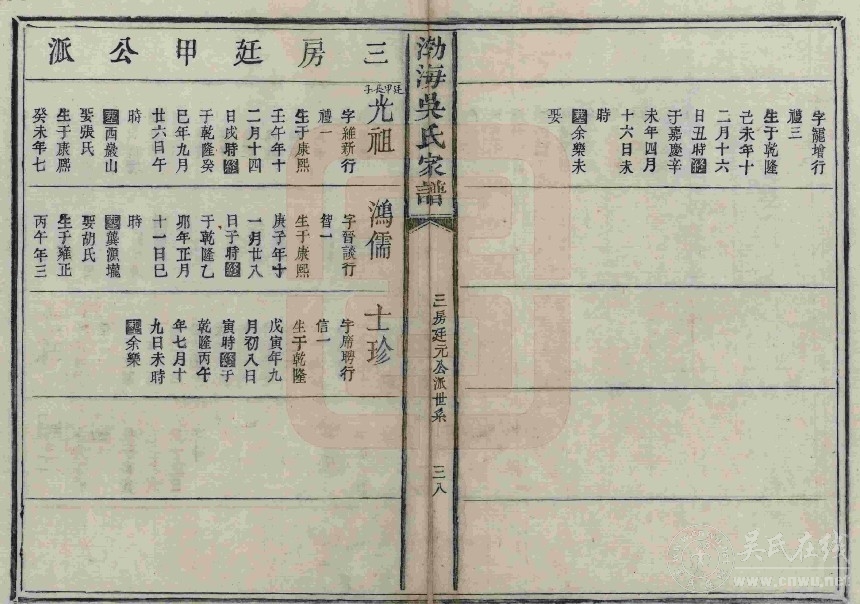 字寵增行
禮三
生于乾隆
己未年十
二月十六
日丑時終
于嘉慶辛
未年四月
十六日未
時
葬余樂未
娶
渤海吳氏家譜
三房廷元公派世系
三八
三房廷甲公派
廷甲長子
光祖
字維新行
禮一
生于康熙
壬午年十
二月十四
日戌時終
于乾隆癸
巳年九月
廿六日午
時
葬西巖山
娶張氏
生于康熙
癸未年七
鴻儒
字晉談行
智一
生于康熙
庚子年十
一月廿八
日子時終
于乾隆乙
卯年正月
十一日巳
時
葬龔源壠
娶胡氏
生于雍正
丙午年三
士珍
字席聘行
信一
生于乾隆
戊寅年九
月初八日
寅時終于
乾隆丙午
年七月十
九日未時
葬余樂
吴氏在线
www.cnwu.net